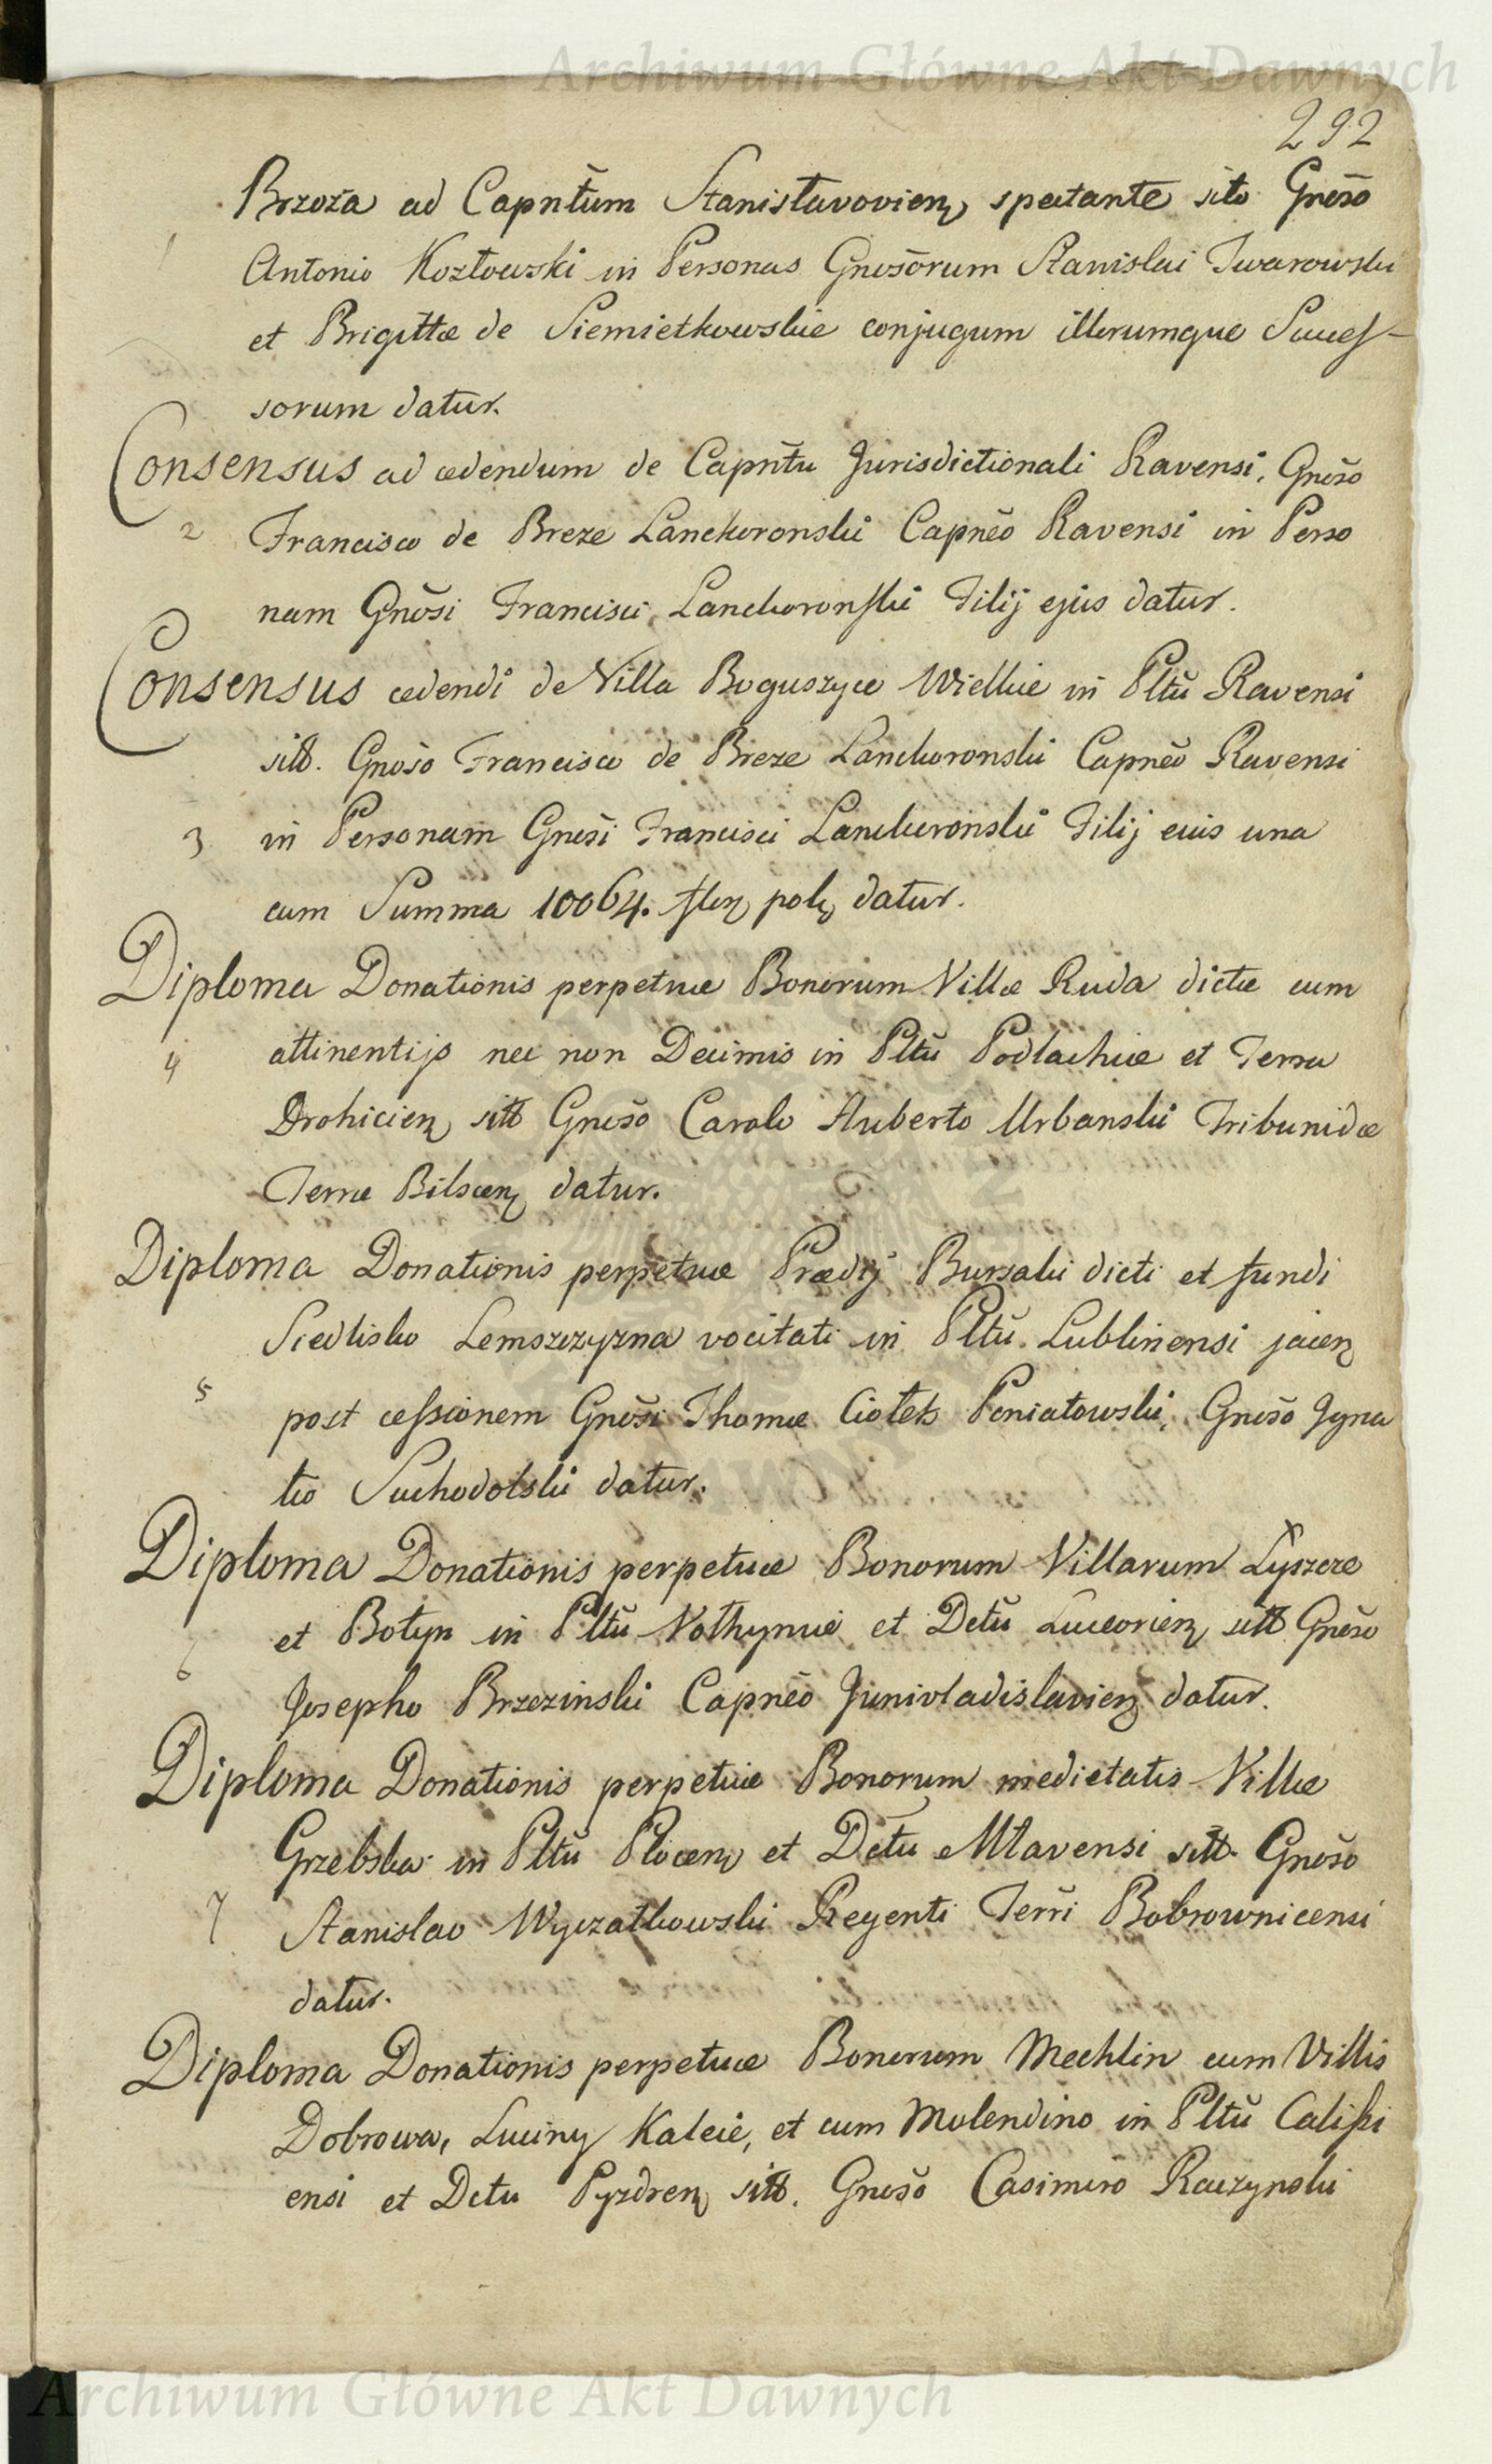 Archiwum Główne Akt Dawnych
292
Brzoza ad Capntũm Stanisławovien spectante sito Gnoso
1
Antonio Kozłowski in Personas Gnosõrum Stanislai Twarowski
et Brigittæ de Siemietkowskie conjugum illorumque Succes-
sorum datur.
Consensus ad cedendum de Capntũ Jurisdictionali Ravensi, Gnoso
2 Francisco de Breze Lanckoronski Capnẽo Ravensi in Perso
nam Gnõsi Francisci Lanckoronski Filij ejus datur.
Consensus cedendi de Villa Boguszyce Wielkie in Pltũ Ravensi
sitt. Gnoso Francisco de Breze Lanckoronski Capnẽo Ravensi
3 in Personam Gnosi Francisci Lanckoronski Filij eius una
cum Summa 10064. flen pol, datur.
Diploma Donationis perpetuæ Bonorum Villæ Ruda dictæ cum
4 attinentijs nec non Decimis in Pltũ Podlachiæ et Terra
Drohicien sitt Gnoso Carolo Auberto Urbanski Tribunidæ
Terræ Bilscen datur.
Diploma Donationis perpetuæ Prædij Bursaki dicti et fundi
Siedlisko Lemszczyzna vocitati in Pltũ Lublinensi jacen
5 post cessionem Gnosi Thomæ Ciołek Poniatowski, Gnoso Igna
tio Suchodolski datur.
Diploma Donationis perpetuæ Bonorum Villarum Łyszcze
et Botyn in Pltũ Vołhyniæ et Detũ Luceorien sitt Gnoso
6
Josepho Brzezinski Capnẽo Junivladislavien datur.
Diploma Donationis perpetuæ Bonorum medietatis Villæ
Grzebska in Pltũ Plocen et Detu Mlavensi sitt. Gnoso
7 Stanislao Wyczałkowski Regenti Terri Bobrownicensi
datur.
Diploma Donationis perpetuæ Bonorum Mechlin cum Villis
Dobrowa, Luciny Kaleie, et cum Molendino in Pltũ Calissi
ensi et Detu Pyzdren sitt. Gnoso Casimiro Raczynski
Archiwum Główne Akt Dawnych